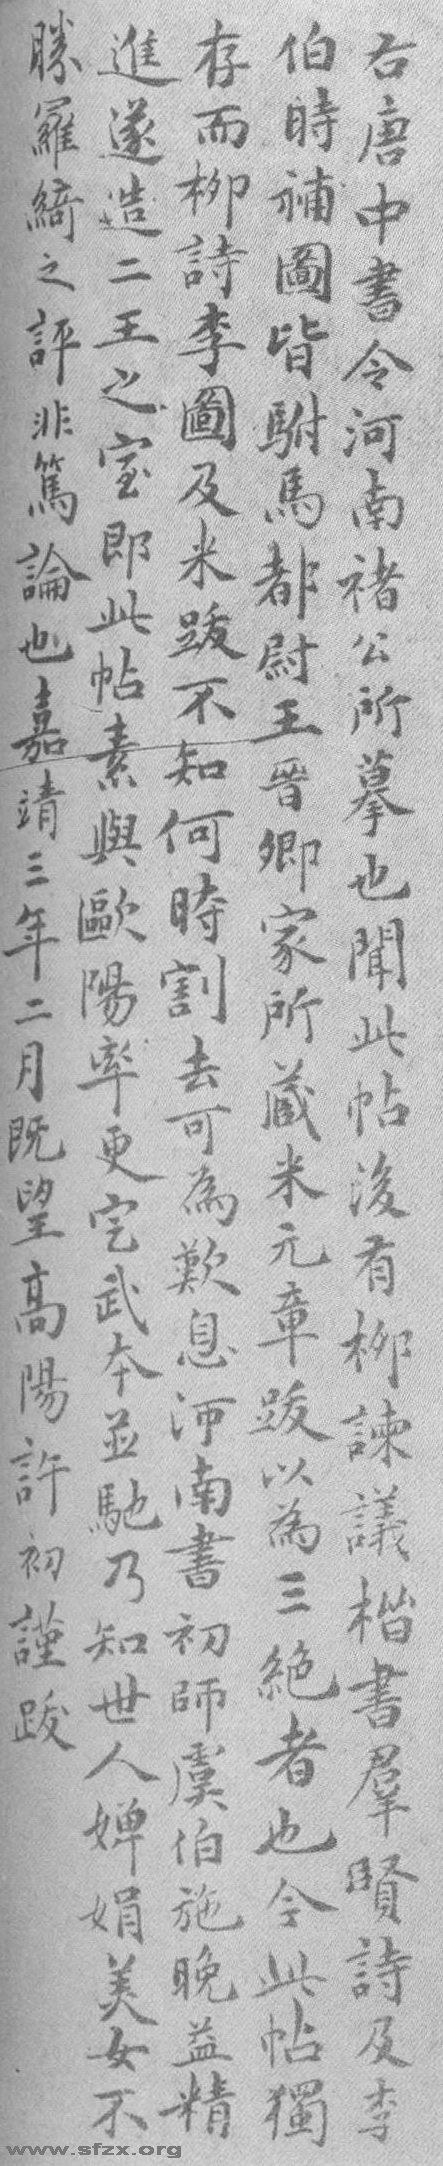 右唐中書令河南褚公所摹也聞此帖後有柳諫議楷書羣賢詩及李
伯時補圖皆駙馬都尉王晉卿家所蔵米元章跋以為三絕者也今此帖獨
存而柳詩李圖及米跋不知何時割去可為歎息河南書初師虞伯施晚益精
進遂造二王之室即此帖素與歐陽率更定武本並馳乃知世人嬋娟美女不
勝羅綺之評非篤論也嘉靖三年二月既望高陽許初謹跋
www.sfzx.org